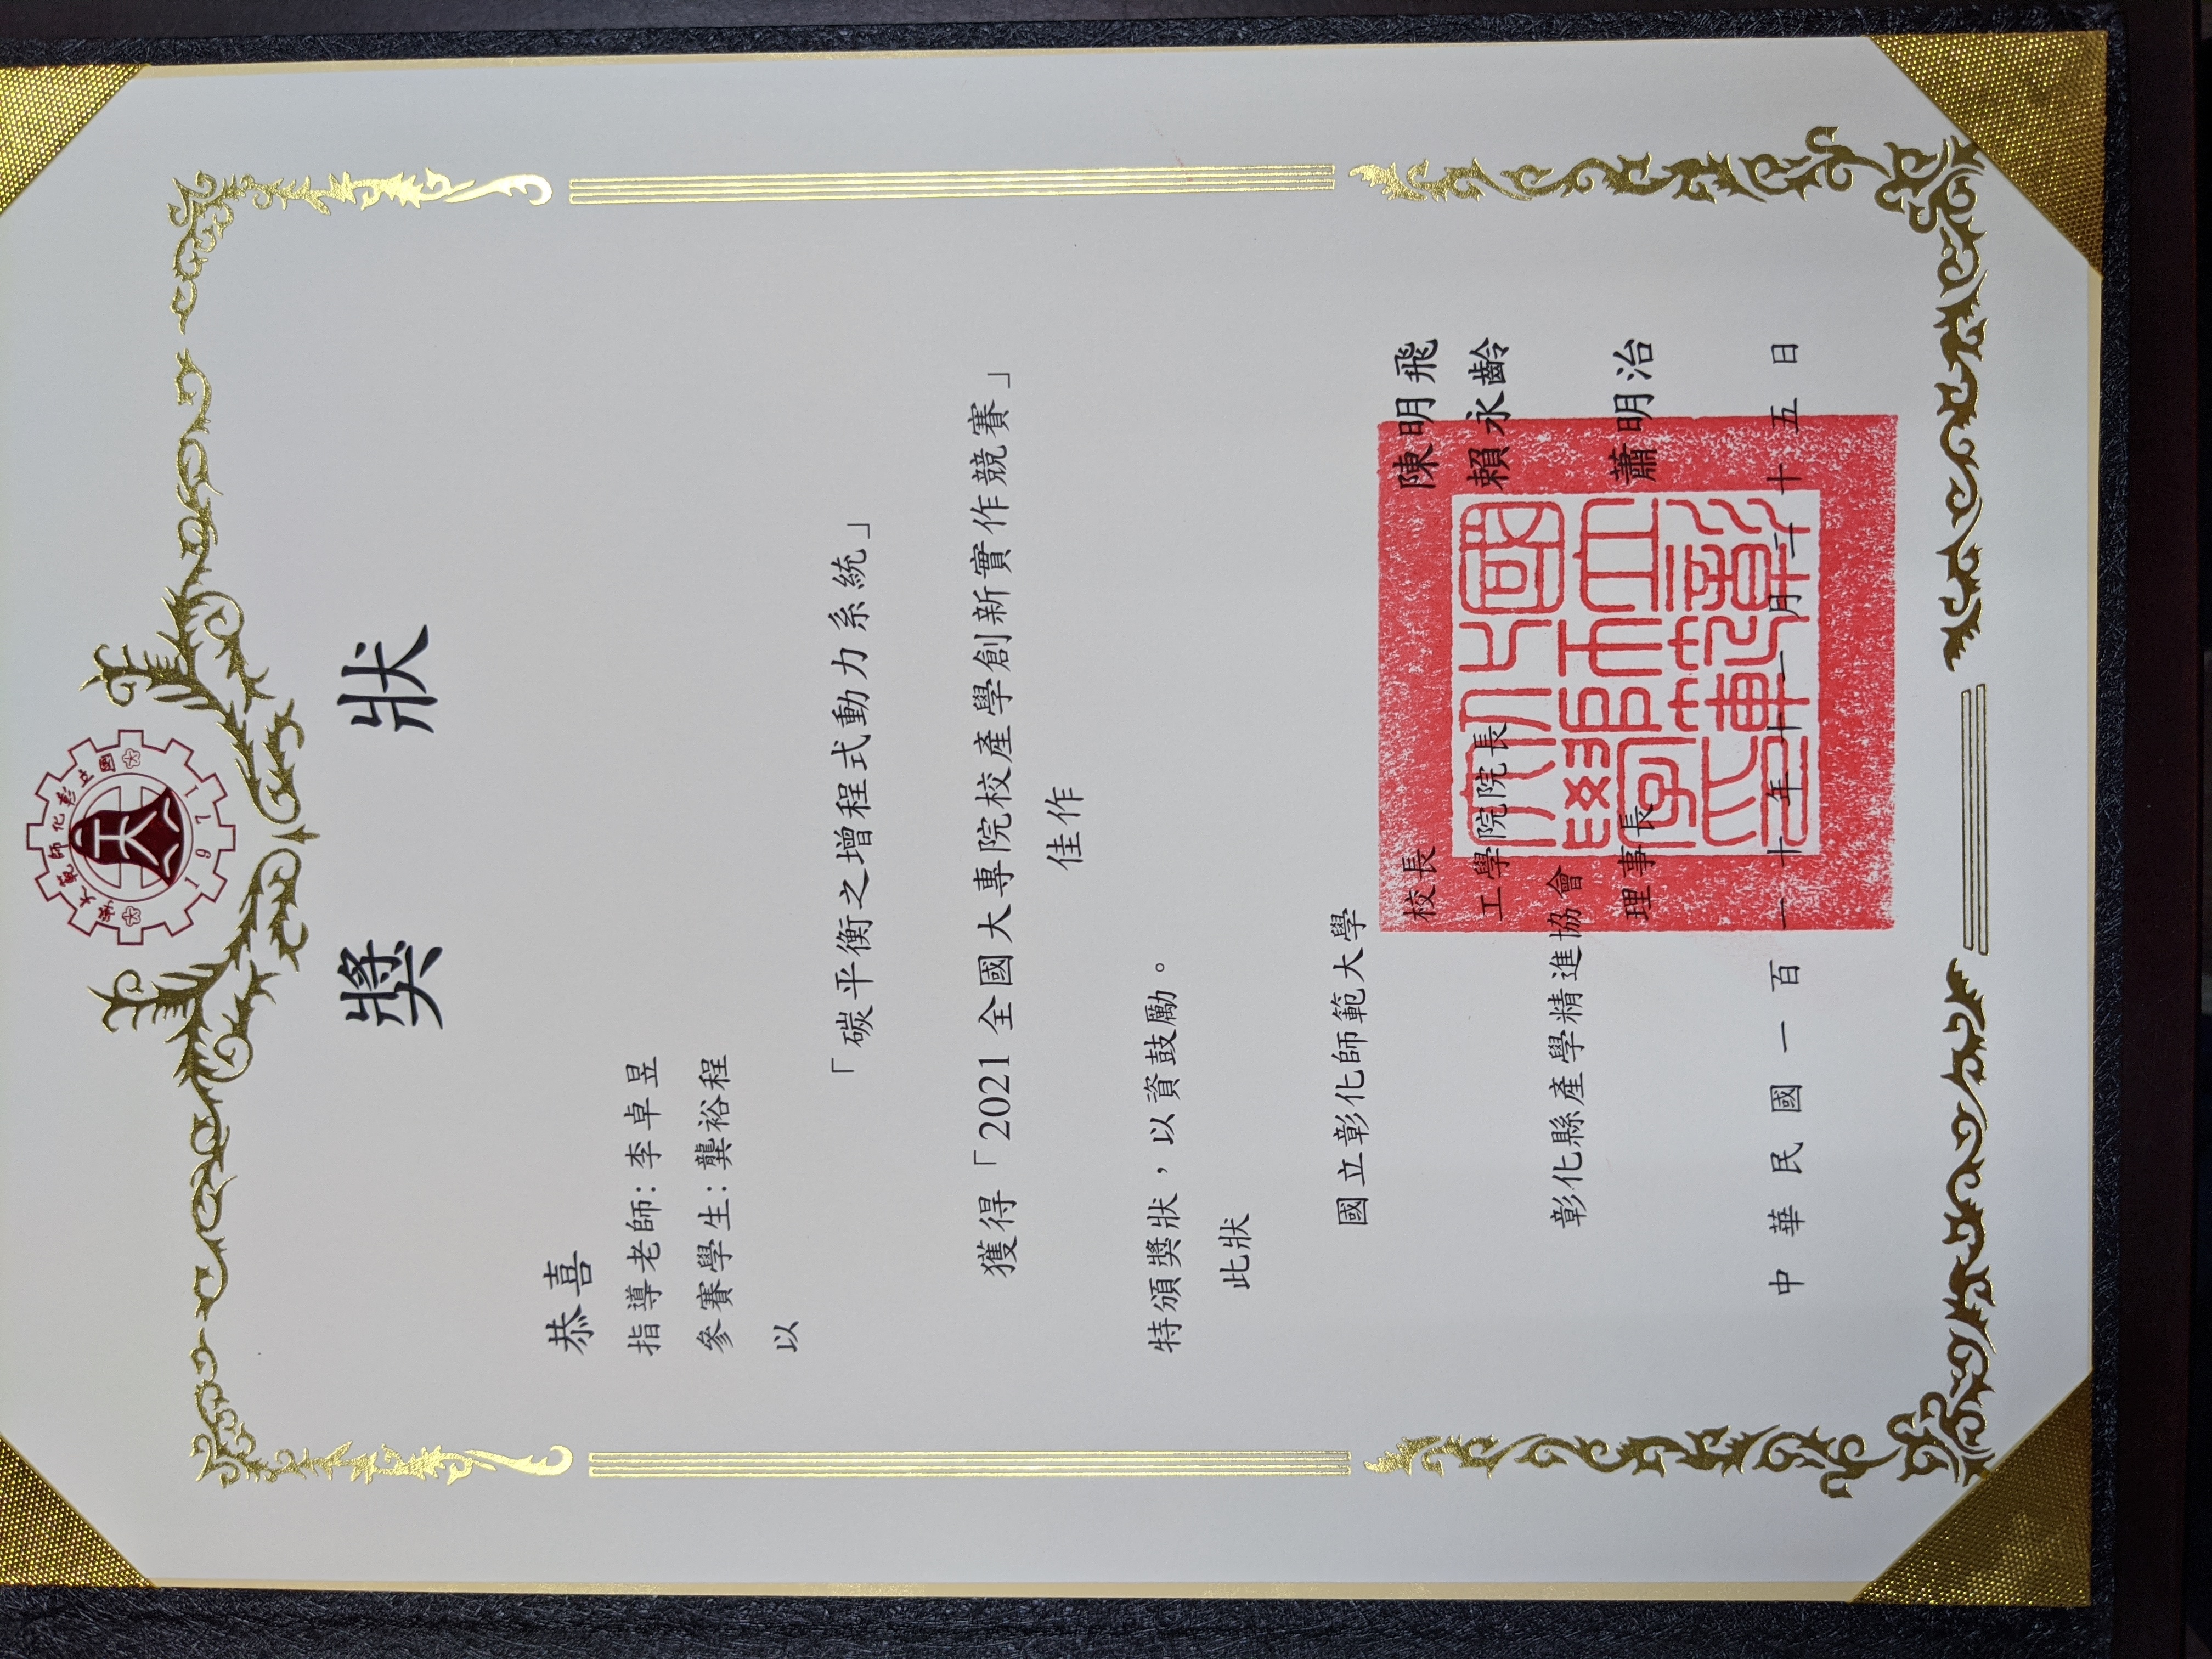 國立彰化師範大學
1971
獎狀
恭喜
指導老師:李卓昱
參賽學生:龔裕程
以
「碳平衡之增程式動力系統」
獲得「2021全國大專院校產學創新實作競賽」
佳作
特頒獎狀，以資鼓勵。
此狀
國立彰化師範大學
校長 陳明飛
工學院院長 賴永齡
彰化縣產學精進協會
理事長 蕭明治
國立彰化師範大學
中華民國一百一十年十一月二十五日